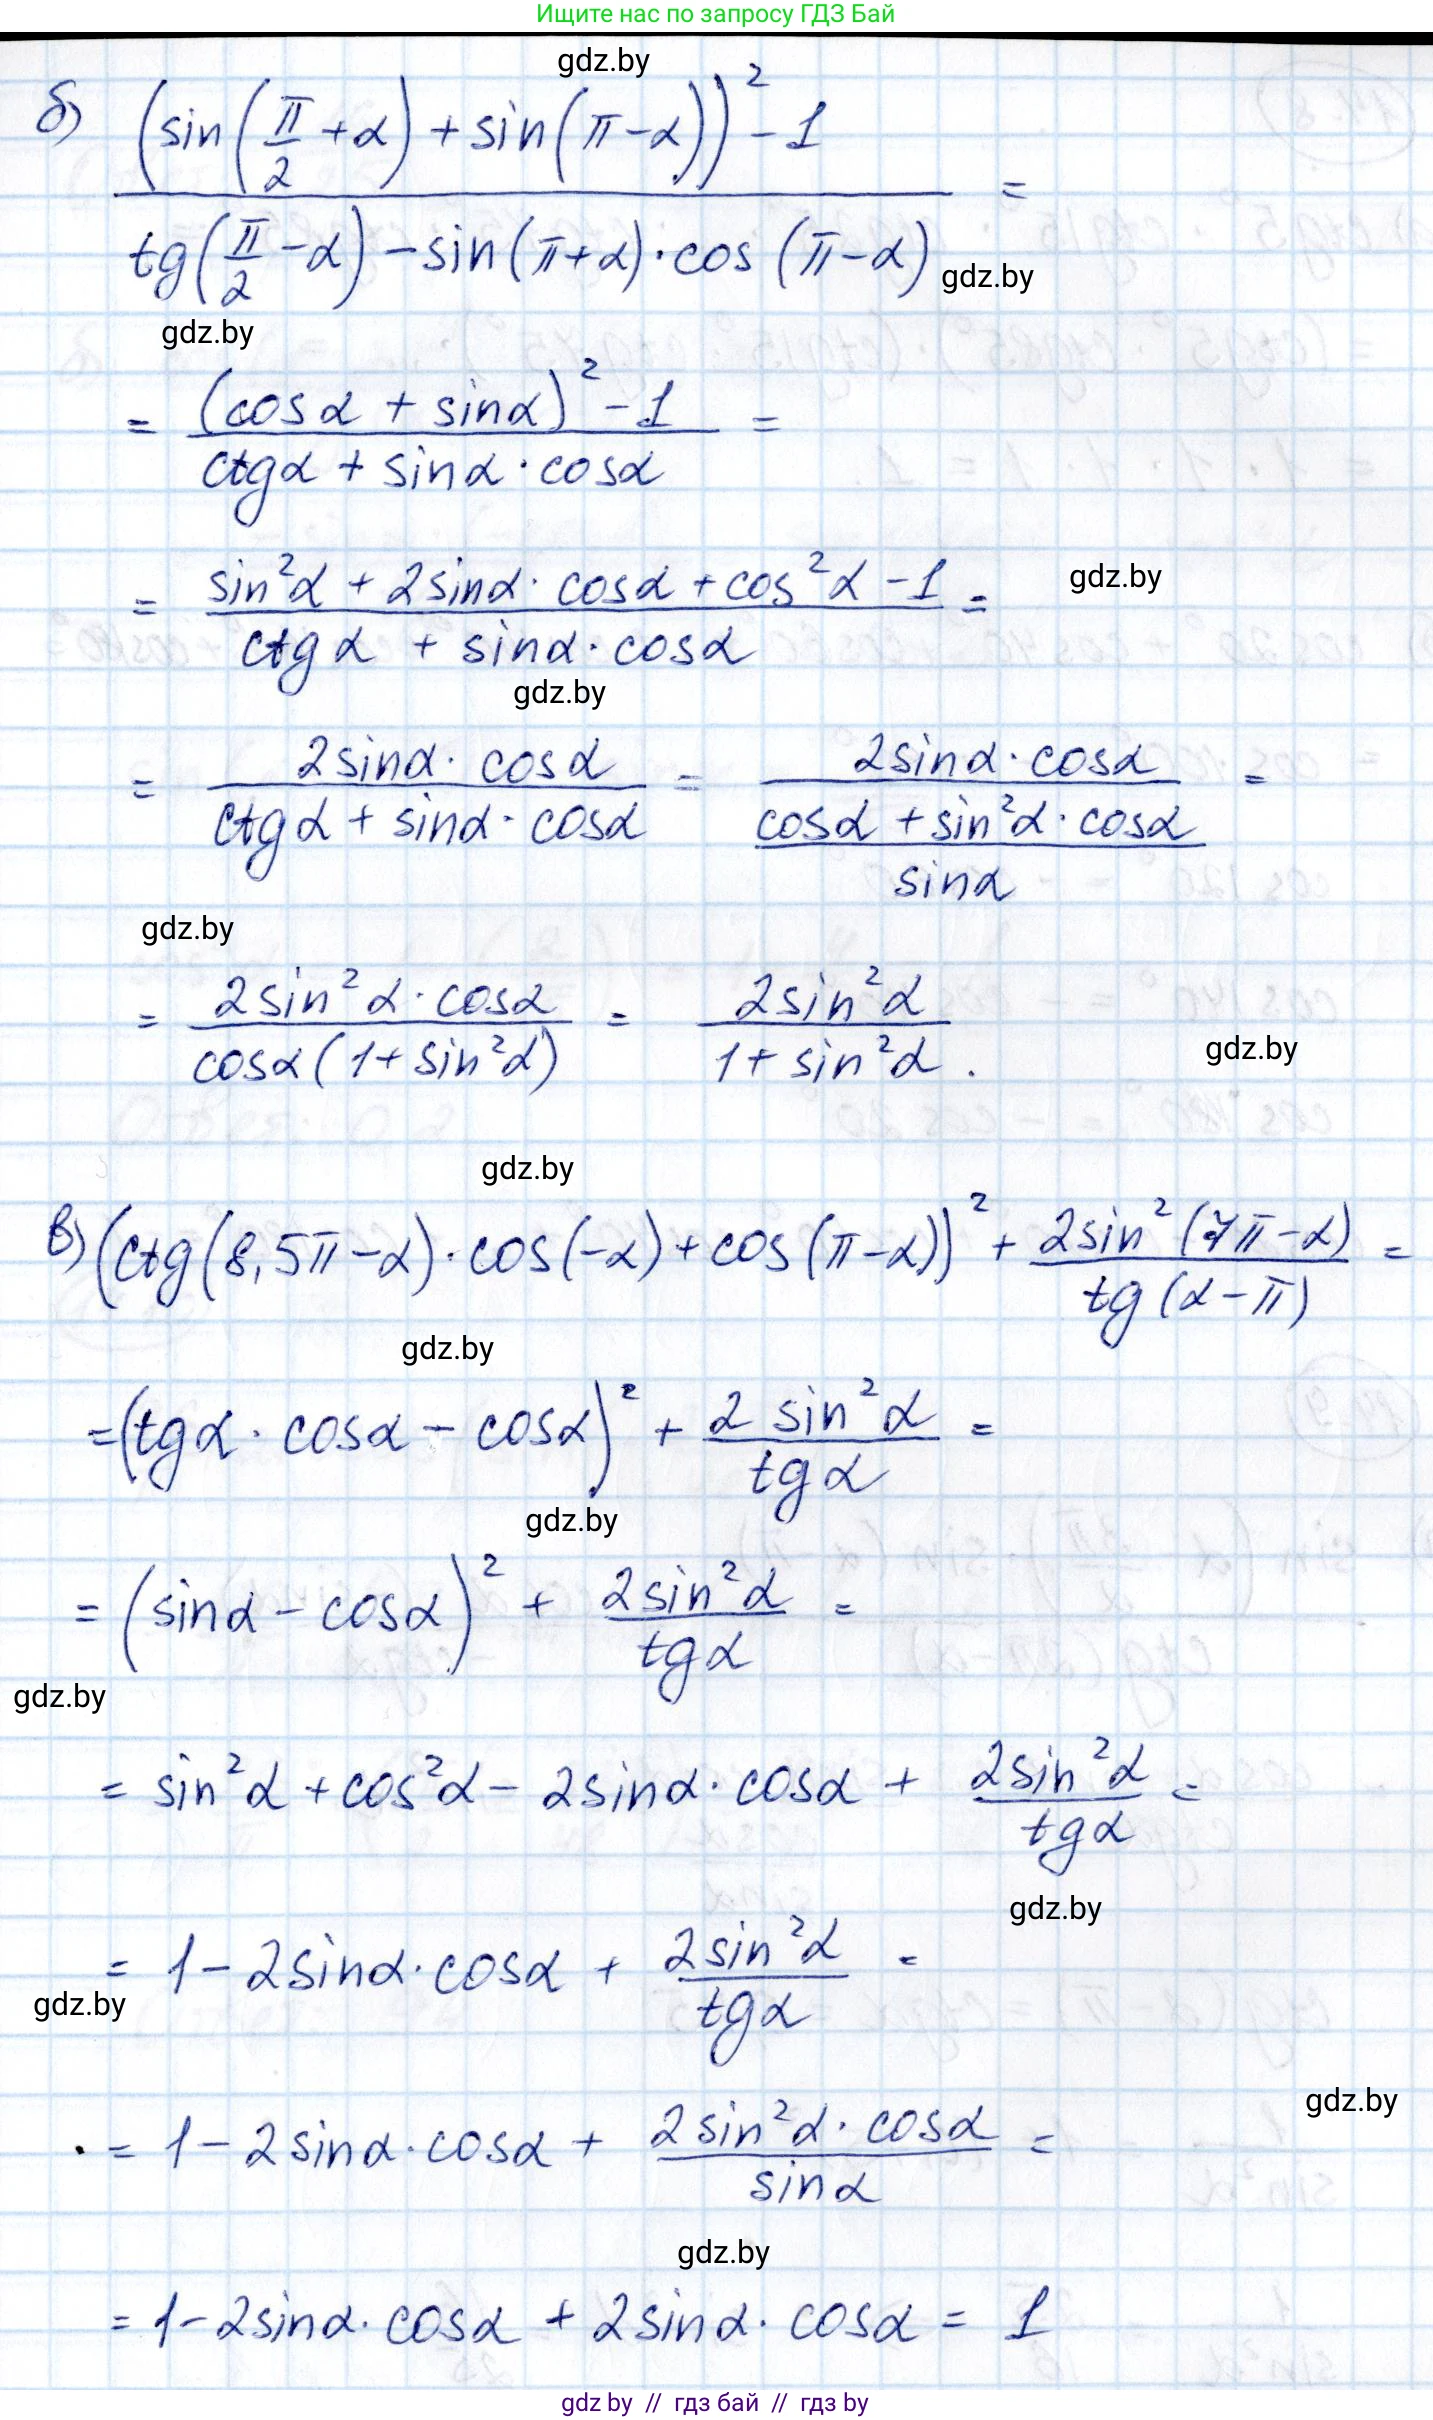 Ищите нас по запросу ГДЗ Бай
gdz.by
б) ((sin(π/2 + α) + sin(π - α))² - 1) / (tg(π/2 - α) - sin(π + α) · cos(π - α)) =
gdz.by
gdz.by
= ((cosα + sinα)² - 1) / (ctgα + sinα · cosα) =
= (sin²α + 2sinα · cosα + cos²α - 1) / (ctgα + sinα · cosα) =
gdz.by
gdz.by
= (2sinα · cosα) / (ctgα + sinα · cosα) = (2sinα · cosα) / ((cosα + sin²α · cosα) / sinα) =
gdz.by
= (2sin²α · cosα) / (cosα(1 + sin²α)) = (2sin²α) / (1 + sin²α).
gdz.by
gdz.by
в) (ctg(8,5π - α) · cos(-α) + cos(π - α))² + (2sin²(7π - α)) / (tg(α - π)) =
gdz.by
= (tgα · cosα - cosα)² + (2 sin²α) / (tgα) =
gdz.by
= (sinα - cosα)² + (2sin²α) / (tgα) =
gdz.by
= sin²α + cos²α - 2sinα · cosα + (2sin²α) / (tgα) =
gdz.by
= 1 - 2sinα · cosα + (2sin²α) / (tgα) =
gdz.by
gdz.by
= 1 - 2sinα · cosα + (2sin²α · cosα) / (sinα) =
gdz.by
= 1 - 2sinα · cosα + 2sinα · cosα = 1
gdz by // гдз бай // гдз by